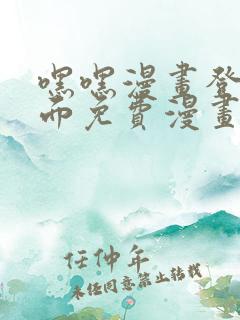 嘿嘿漫畫登
而免費漫畫
任仲年
未经同意禁止转载